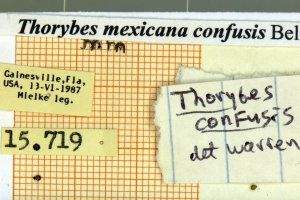 Thorybes mexicana confusis Bel
mm
Gainesville,Fla,
USA, 13-VI-1987
Mielke leg.
15.719
Thorybes
confusis
det warren